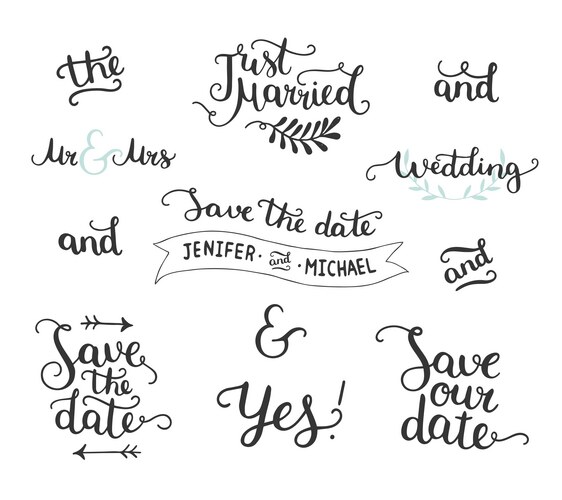 the
Just
Married
and
Mr & Mrs
Wedding
Save the date
and
JENIFER · and · MICHAEL
and
Save
the
date
&
Yes!
Save
our
date